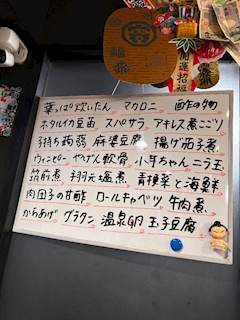 開運招福
葉っぱ炊いたん マカロニ 酢の物
ホタルイカ豆菌 スパサラ アキレス煮こごり
子持ち蒟蒻 麻婆豆腐 揚げ茄子煮
ウィンピー やげん軟骨 小芋ちゃん ニラ玉
筑前煮 手羽元塩煮 青梗菜と海鮮
肉団子の甘酢 ロールキャベツ 牛肉煮
からあげ グラタン 温泉卵 玉子豆腐